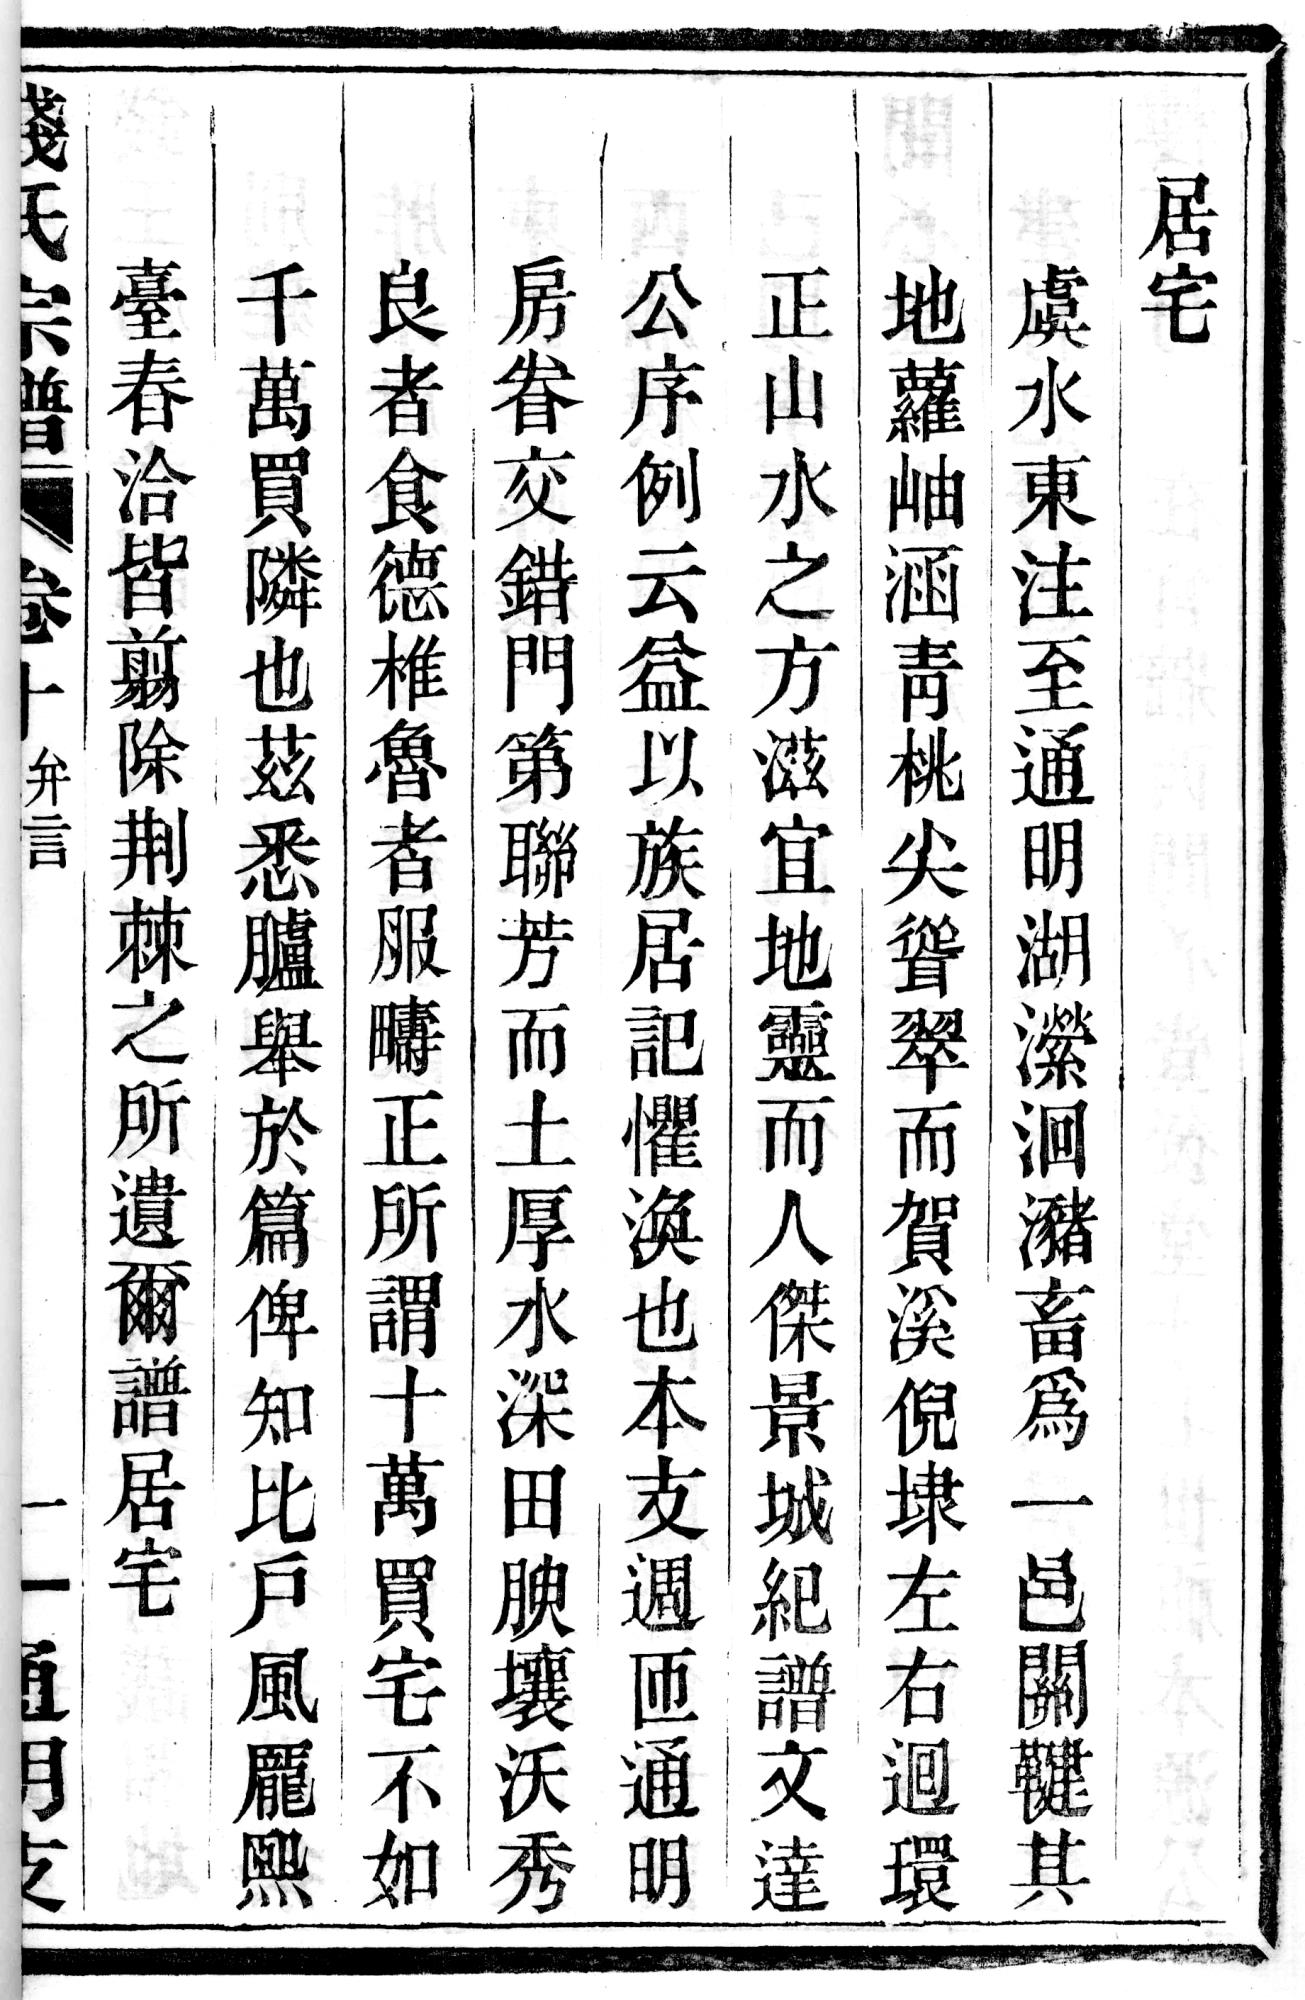 居宅
虞水東注至通明湖瀠洄瀦畜爲一邑關鞬其
地蘿岫涵靑桃尖聳翠而賀溪倪埭左右迴環
正山水之方滋宜地靈而人傑景城紀譜文達
公序例云益以族居記懼渙也本支週匝通明
房眷交錯門第聯芳而土厚水深田腴壤沃秀
良者食德椎魯者服疇正所謂十萬買宅不如
千萬買隣也茲悉臚舉於篇俾知比戶風龎熙
臺春洽皆翦除荆棘之所遺爾譜居宅
錢氏宗譜 卷十 弁言 一 通明支